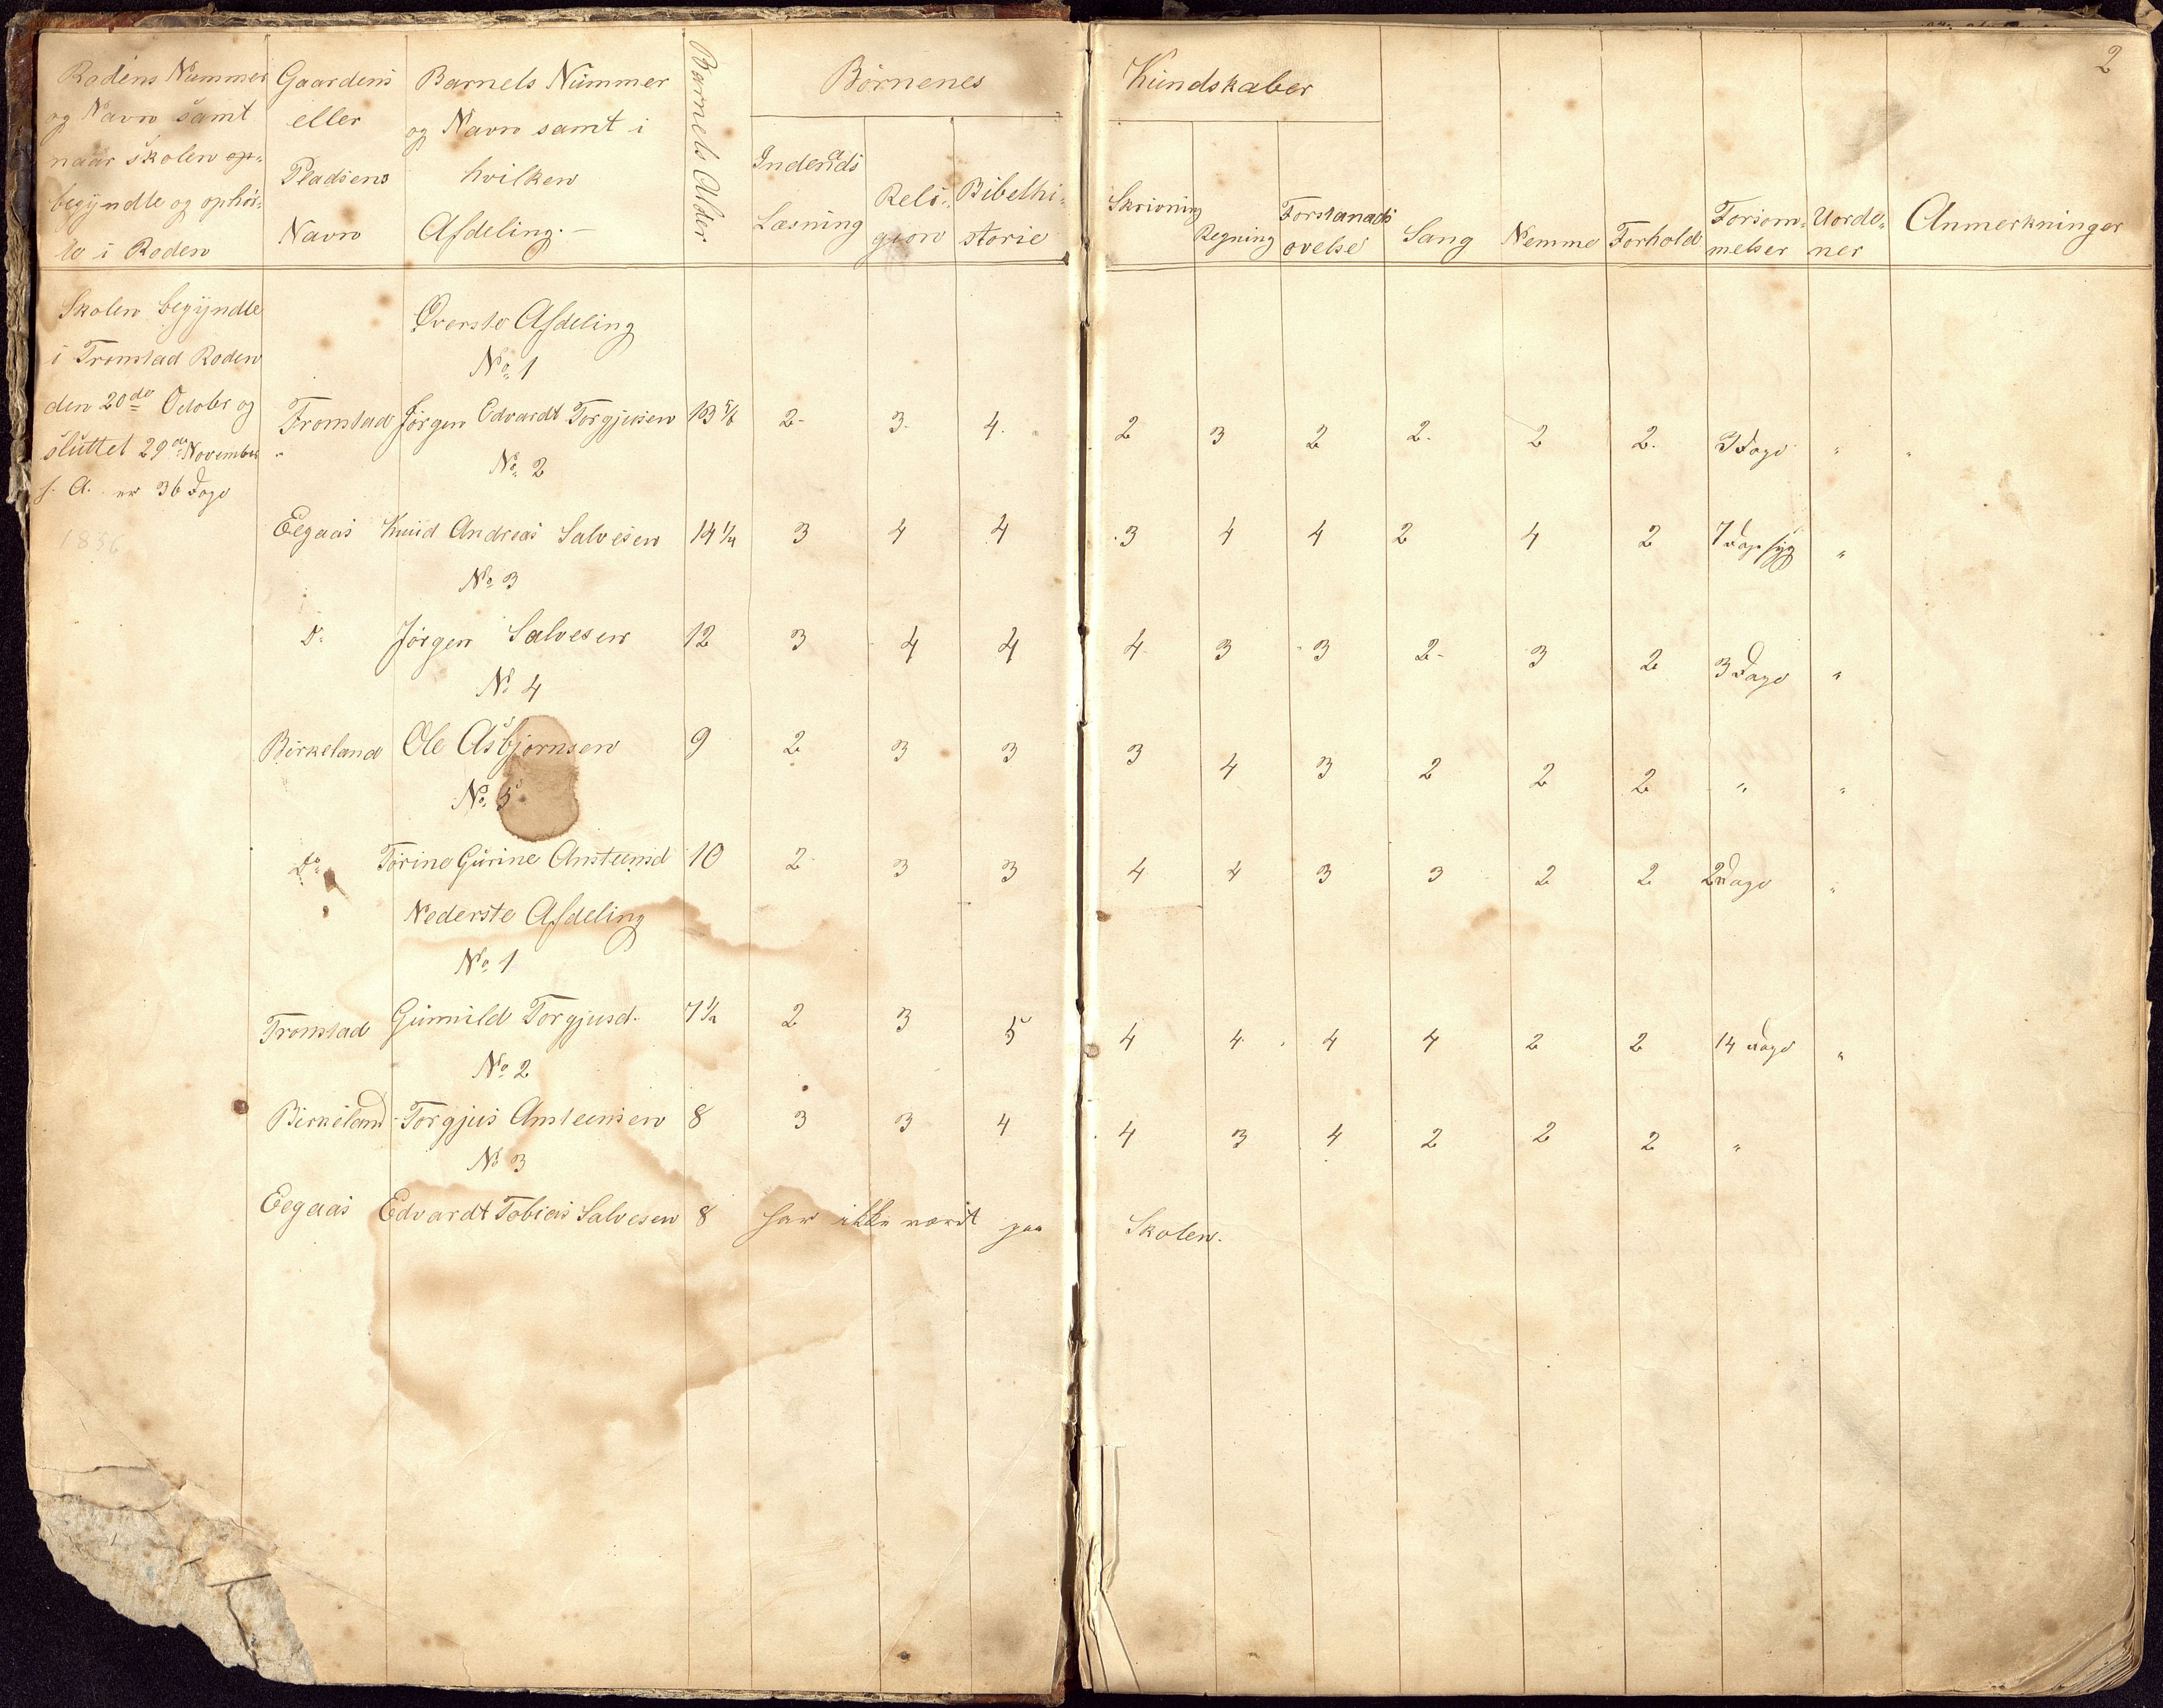 2
Rodens Nummer og Navn samt naar skolen op- begyndte og ophör- te i Roden
Gaardens eller Pladsens Navn
Barnets Nummer og Navn samt i hvilken Afdeling.-
Barnets Alder
Börnenes Kundskaber
Indenads Læsning
Reli- gion
Bibelhi- storie
Skrivning
Regning
Forstands övelse
Sang
Nemme
Forhold
Forsöm- melser
Uorde- ner
Anmerkninger
Skolen begyndte
i Tromstad Roden
den 20de Octobr og
sluttet 29de November
s. A. 36 Dage
1856
Överste Afdeling
No 1
Tromstad Jörgen Edvardt Torgjusen 13 5/6 2 3 4 2 3 2 2 2 2 3 Dage " "
No 2
Eegaas Knud Andreas Salvesen 14 1/4 3 4 4 3 4 4 2 4 2 7 Dage syg "
No 3
Do Jörgen Salvesen 12 3 4 4 4 3 3 2 3 2 3 Dage "
No 4
Birkeland Ole Asbjörnsen 9 2 3 3 3 4 3 2 2 2 " "
No 5
Do Torine Gurine Ansteensd 10 2 3 3 4 4 3 3 2 2 2 Dage "
Nederste Afdeling
No 1
Tromstad Gunnild Torgjusd. 7 1/2 2 3 5 4 4 4 4 2 2 14 Dage "
No 2
Birkeland Torgjus Ansteensen 8 3 3 4 4 3 4 2 2 2 "
No 3
Eegaas Edvardt Tobias Salvesen 8 har ikke værit paa Skolen.